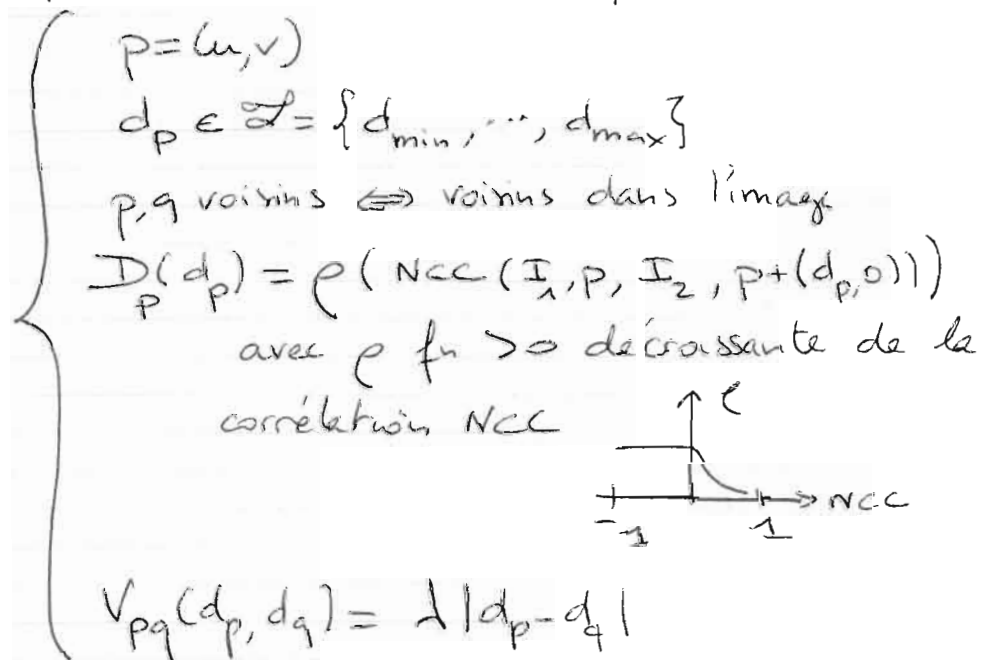 p=(u,v)
d_p ∈ ℒ = {d_min, ..., d_max}
p,q voisins ⟺ voisins dans l'image
D_p(d_p) = ρ(NCC(I_1, p, I_2, p+(d_p,0)))
avec ρ fn >0 décroissante de la
corrélation NCC
ρ
NCC
-1 1
V_pq(d_p, d_q) = λ|d_p - d_q|